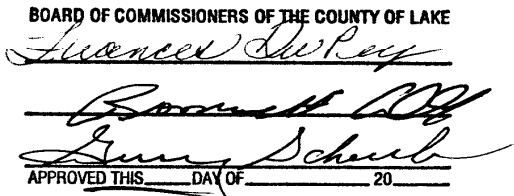 BOARD OF COMMISSIONERS OF THE COUNTY OF LAKE
Frances DuPey
Gerry Scheub
APPROVED THIS____DAY OF____20__